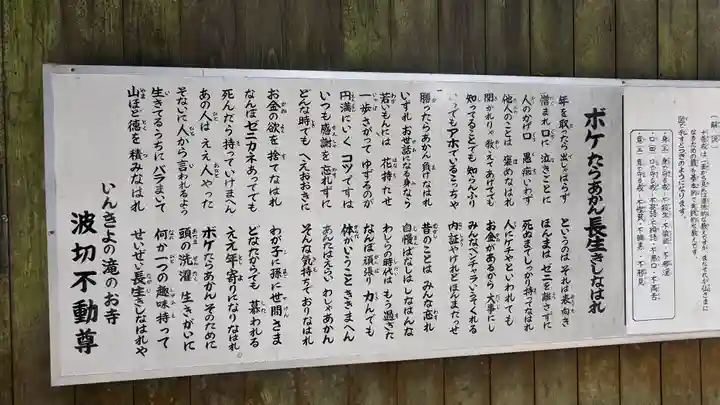 【解説】
身三 身で守る戒 不殺生・不偸盗・不邪淫
ボケたらあかん長生きしなはれ
年を取ったら出しゃばらず
憎まれ口に泣きごとに
人のかげ口愚痴いわず
他人のことは褒めなはれ
聞かれりゃ教えてあげても
知ってることでも知らんふり
いつでもアホでいるこっちゃ
勝ったらあかん負けなはれ
いずれお世話になる身なら
若いもんには花持たせ
一歩さがってゆずるのが
円満にいくコツですは
いつも感謝を忘れずに
どんな時でもへえおおきに
お金の欲を捨てなはれ
なんぼゼニカネあってても
死んだら持っていけまへん
あの人はええ人やった
そないに人から言われるよう
生きてるうちにバラまいて
山ほど徳を積みなはれ
というのはそれは表向き
ほんまはゼニを離さずに
死ぬまでしっかり持ってなはれ
人にケチやといわれても
お金があるから大事にし
みんなベンチャラいうてくれる
内証やけれどほんまだっせ
昔のことはみんな忘れ
自慢ばなしはしなはんな
わしらの時代はもう過ぎた
なんぼ頑張り力んでも
体がいうことききまへん
あんたはえらいわしゃあかん
そんな気持ちでおりなはれ
わが子に孫に世間さま
どなたからでも慕われる
ええ年寄りになりなはれ。
ボケたらあかんそのために
頭の洗濯生きがいに
何か一つの趣味持って
せいぜい長生きしなはれや
いんきよの滝のお寺
波切不動尊